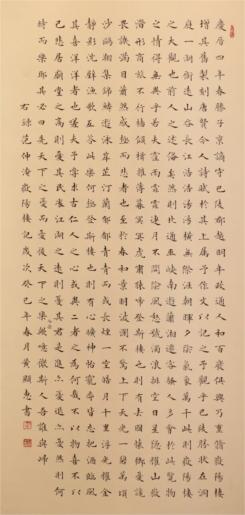 慶曆四年春滕子京謫守巴陵郡越明年政通人和百廢俱興乃重脩岳陽樓
增其舊制刻唐賢今人詩賦於其上屬予作文以記之予觀夫巴陵勝狀在洞
庭一湖銜遠山吞長江浩浩湯湯橫無際涯朝暉夕陰氣象萬千此則岳陽樓
之大觀也前人之述備矣然則北通巫峽南極瀟湘遷客騷人多會於此覽物
之情得無異乎若夫霪雨霏霏連月不開陰風怒號濁浪排空日星隱曜山岳
潛形商旅不行檣傾楫摧薄暮冥冥虎嘯猿啼登斯樓也則有去國懷鄉憂讒
畏譏滿目蕭然感極而悲者也至於春和景明波瀾不驚上下天光一碧萬頃
沙鷗翔集錦鱗游泳岸芷汀蘭郁郁青青而或長煙一空皓月千里浮光耀金
靜影沉璧漁歌互答此樂何極登斯樓也則有心曠神怡寵辱皆忘把酒臨風
其喜洋洋者也嗟夫予嘗求古仁人之心或異二者之為何哉不以物喜不以
己悲居廟堂之高則憂其民處江湖之遠則憂其君是進亦憂退亦憂然則何
時而樂耶其必曰先天下之憂而憂後天下之樂而樂歟噫微斯人吾誰與歸
右錄范仲淹岳陽樓記歲次癸巳年春月黃顯惠書